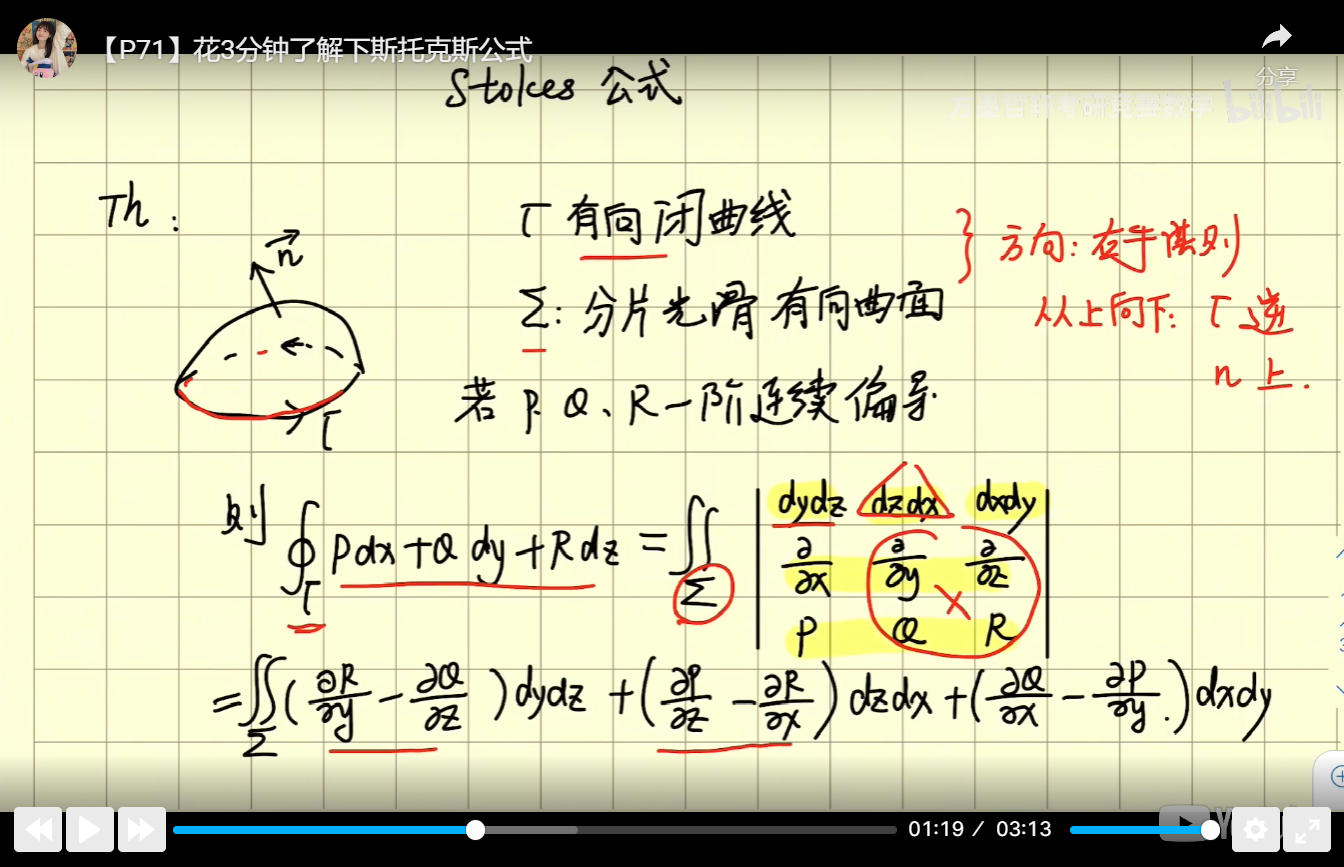 【P71】花3分钟了解下斯托克斯公式
分享
bilibili
Stokes 公式
Th:
n⃗
Γ
Γ 有向闭曲线
Σ: 分片光滑有向曲面
} 方向: 右手法则
从上向下: Γ 逆
n 上.
若 P. Q、R 一阶连续偏导
则 ∮_Γ Pdx+Q dy+Rdz = ∬_Σ | dydz dzdx dxdy |
| ∂/∂x ∂/∂y ∂/∂z |
| P Q R |
=∬_Σ (∂R/∂y - ∂Q/∂z) dydz + (∂P/∂z - ∂R/∂x) dzdx + (∂Q/∂x - ∂P/∂y.) dxdy
01:19 / 03:13